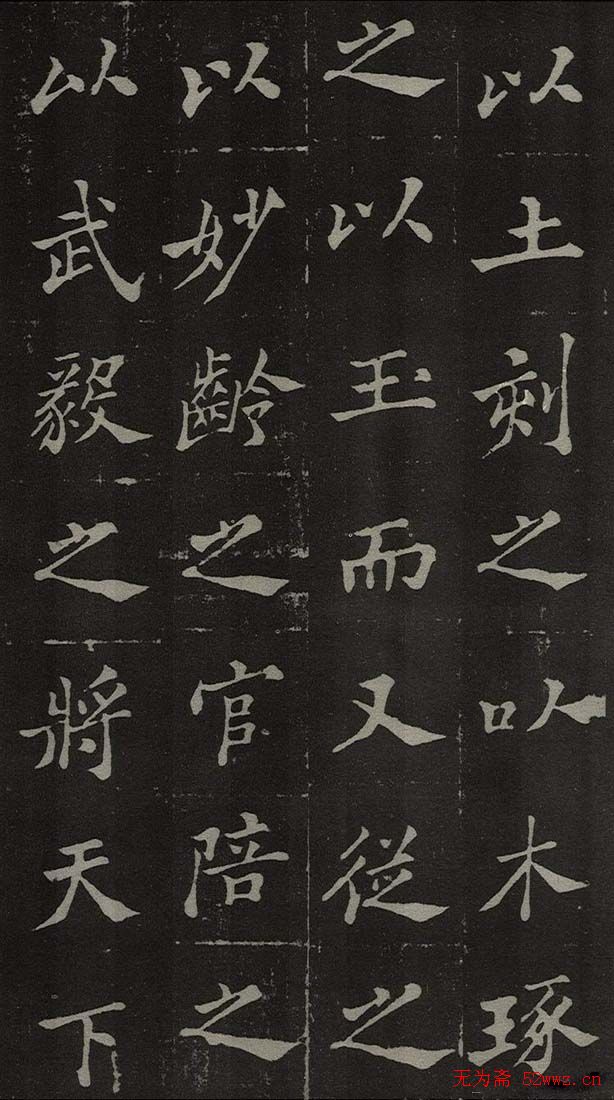 以土刻之以木琢
之以玉而又從之
以妙齡之官陪之
以武毅之將天下
无为斋 52wwz.cn